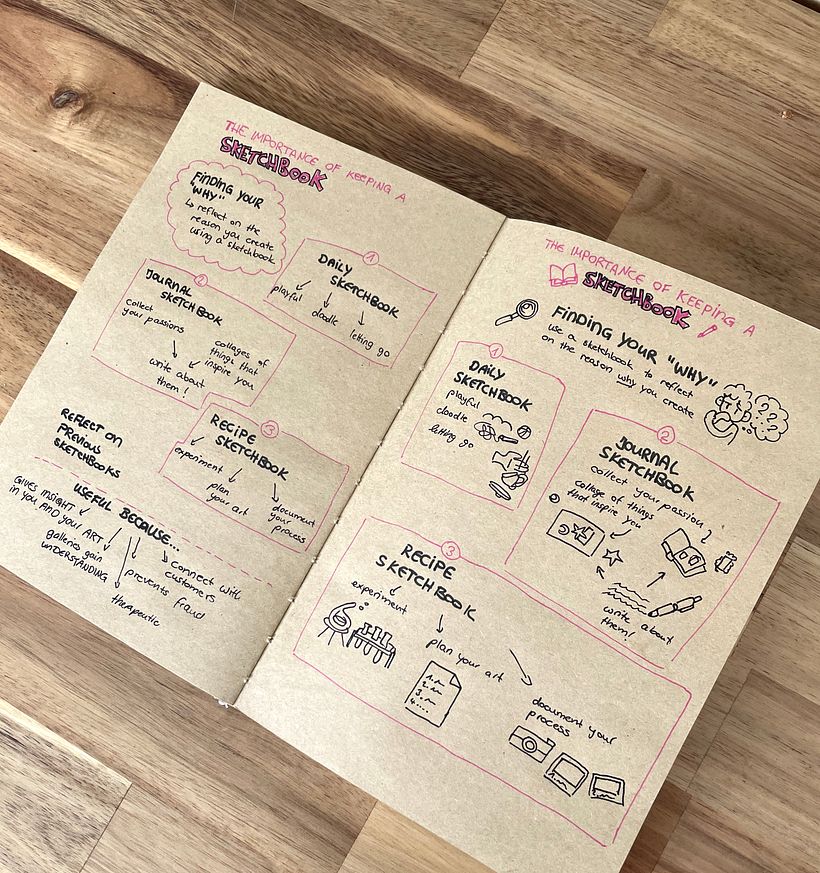 THE IMPORTANCE OF KEEPING A
SKETCHBOOK
FINDING YOUR
"WHY"
↳ reflect on the
reason you create
using a sketchbook
1
DAILY
SKETCHBOOK
playful
doodle
letting go
2
JOURNAL
SKETCHBOOK
collect
your passions
collages of
things that
inspire you
write about
them!
3
RECIPE
SKETCHBOOK
experiment
plan
your art
document
your
process
REFLECT ON
PREVIOUS
SKETCHBOOKS
USEFUL BECAUSE...
GIVES INSIGHT
IN YOU AND YOUR ART
galleries gain
UNDERSTANDING
therapeutic
prevents fraud
connect with
customers
THE IMPORTANCE OF KEEPING A
SKETCHBOOK
FINDING YOUR "WHY"
use a sketchbook to reflect
on the reason why you create
? ? ?
1
DAILY
SKETCHBOOK
playful
doodle
letting go
2
JOURNAL
SKETCHBOOK
collect your passion
collage of things
that inspire you
write about
them!
3
RECIPE
SKETCHBOOK
experiment
plan your art
1.
2.
3.
4....
document your
process